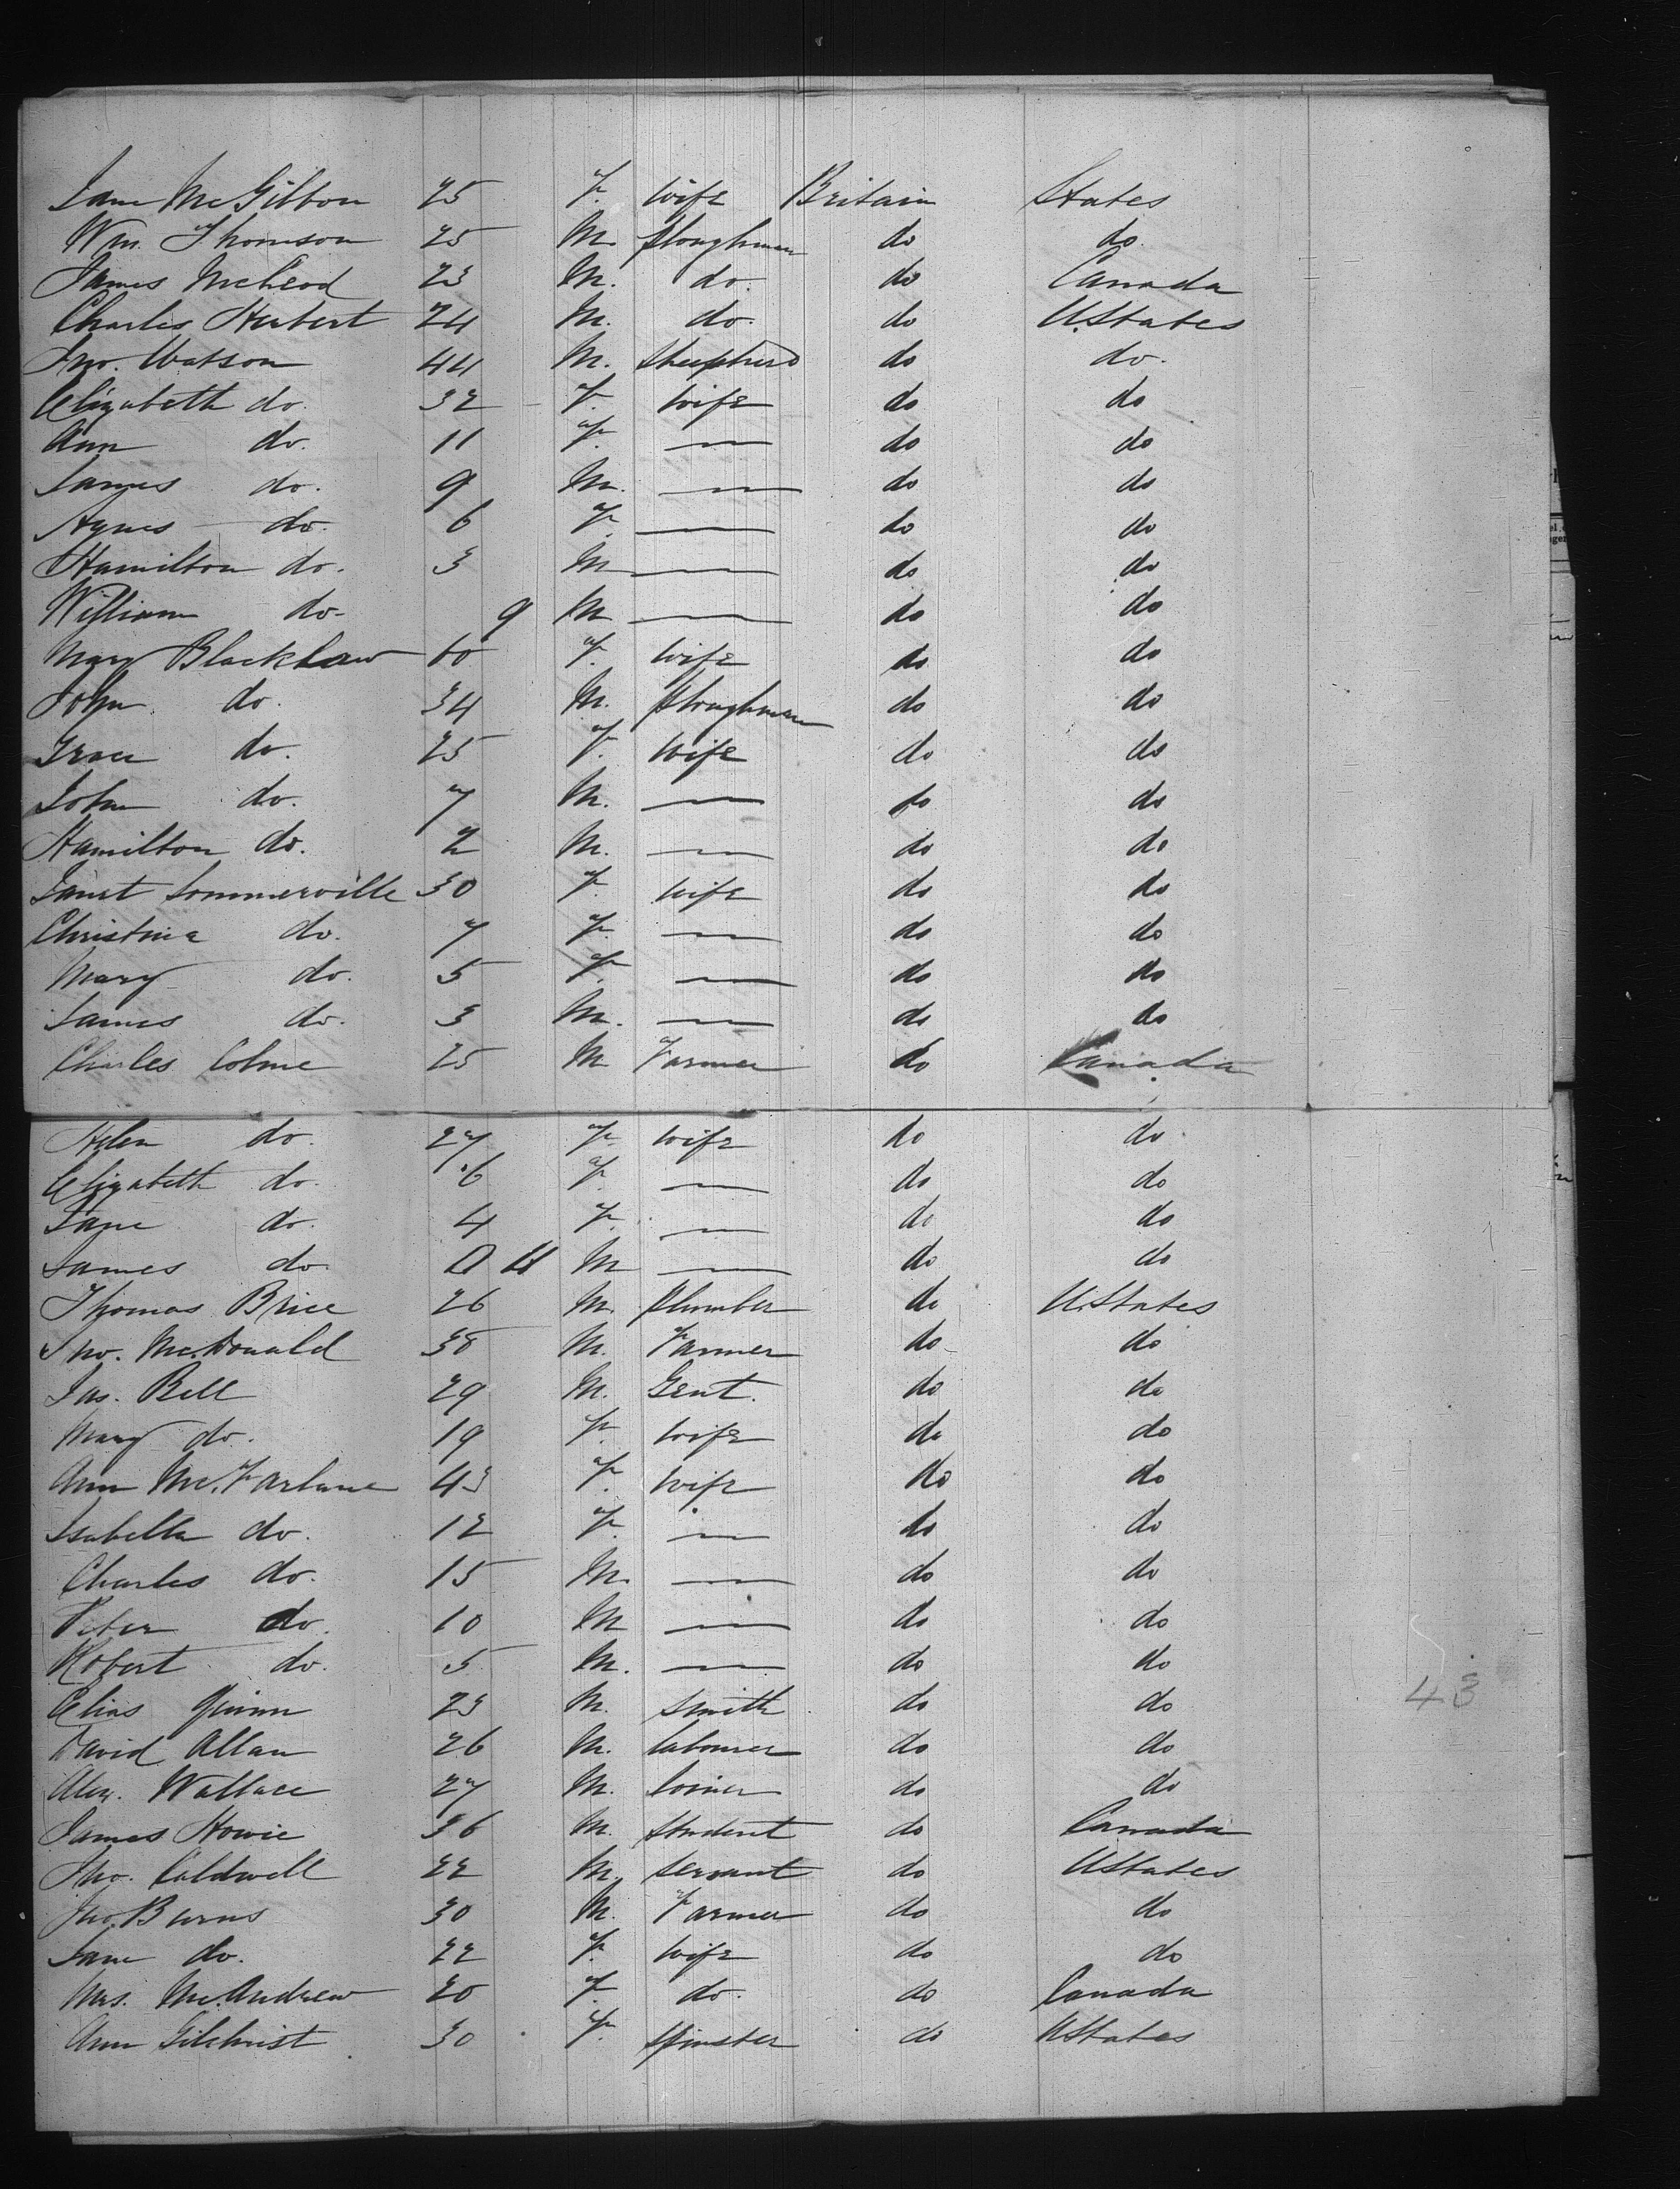 Jane McGibbon 25 F. wife Britain States
Wm. Thomson 25 M. ploughman do do
James McLeod 23 M. do. do Canada
Charles Herbert 24 M. do. do U.States
Jno. Watson 44 M. Sheepherd do do.
Elizabeth do. 32 F. wife do do
Ann do. 11 F. — do do
James do. 9 M. — do do
Agnes do. 6 F. — do do
Hamilton do. 3 M — do do
William do- 9 M — do do
Mary Blacklaw 60 F. wife do do
John do. 34 M. ploughman do do
Grace do. 25 F. wife do do
John do. 7 M. — do do
Hamilton do. 2 M. — do do
Janet Sommerville 30 F. wife do do
Christina do. 7 F. — do do
Mary do. 5 F. — do do
James do. 3 M. — do do
Charles Colme 25 M Farmer do Canada
Helen do. 27 F. wife do do
Elizabeth do. 6 F. — do do
Jane do. 4 F. — do do
James do. M — do do
Thomas Brice 26 M. plumber do U.States
Jno. McDonald M. Farmer do do
Jas. Bell 29 M. Gent. do do
Mary do. 19 F. wife do do
Ann McFarlane 43 F. wife do do
Isabella do. 12 F. — do do
Charles do. 15 M. — do do
Peter do. 10 M — do do
Robert do. 5 M. — do do
Elias Quinn 23 M. Smith do do
David Allan 26 M. labourer do do
Alex. Wallace 27 M. Joiner do do
James Howie 36 M. Student do Canada
Jno. Caldwell 22 M. Servant do UStates
Jno. Burns 30 M. Farmer do do
Jane do. 22 F. wife do do
Mrs. McAndrew 20 F. do. do Canada
Ann Gilchrist 30 F. Spinster do UStates
43